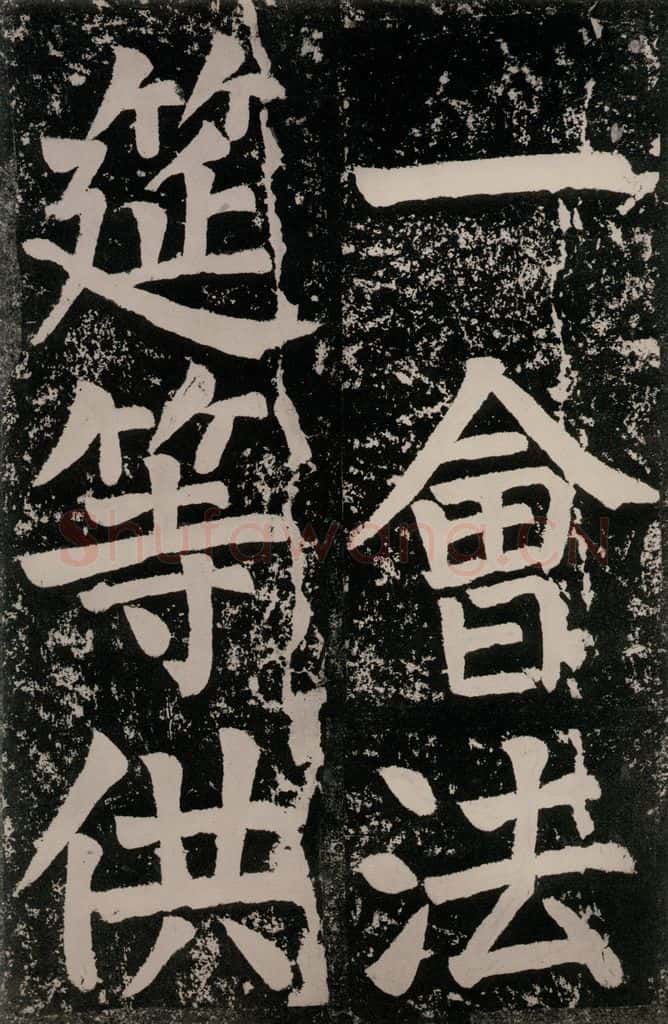 一會法
筵等供
Shufawang.CN